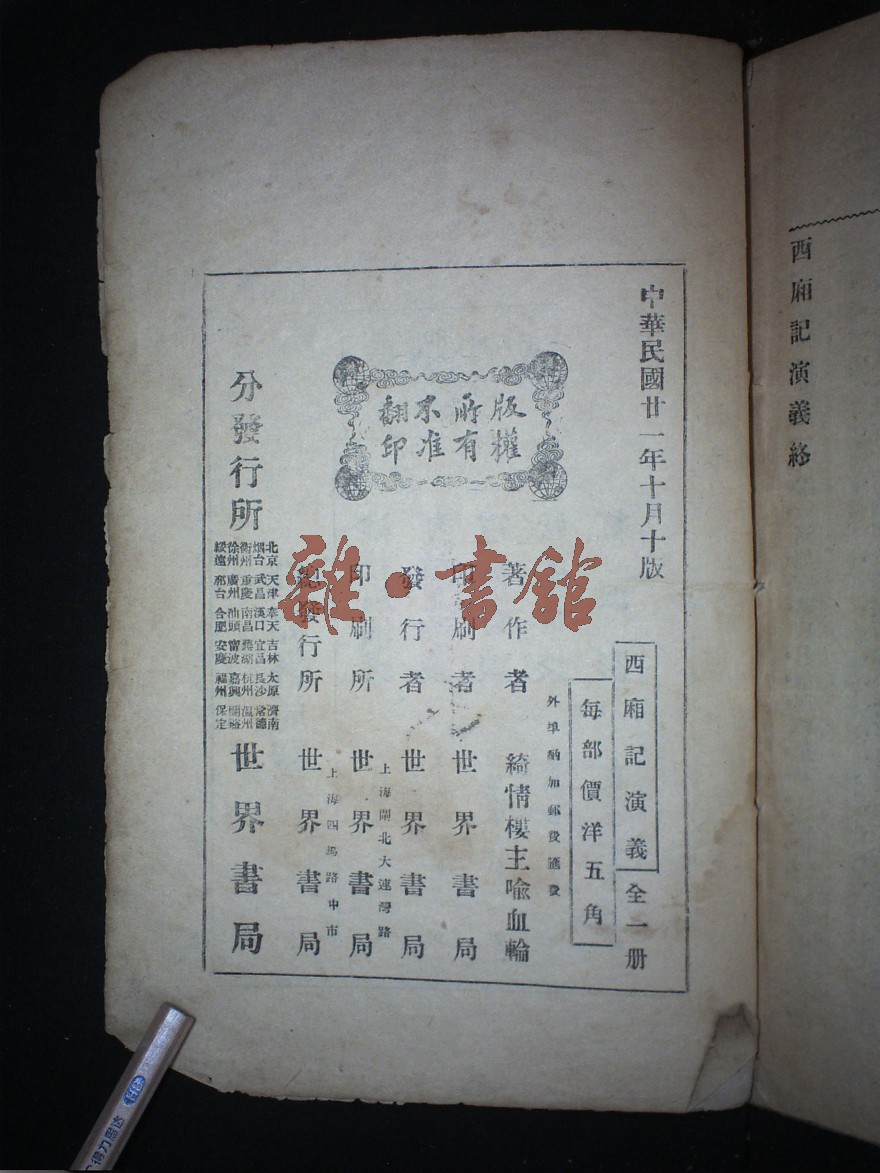 西廂記演義終
中華民國廿一年十月十版
西廂記演義全一册
每部價洋五角
外埠酌加郵費匯費
版權
所有
不准
翻印
著作者 綺情樓主喩血輪
印刷者 世界書局
發行者 世界書局
上海閘北大連灣路
印刷所 世界書局
上海四馬路中市
總發行所 世界書局
分發行所
北京 天津 奉天 吉林 太原 濟南
烟台 武昌 漢口 宜昌 長沙 常德
衢州 重慶 南昌 蕪湖 杭州 温州
徐州 廣州 汕頭 甯波 嘉興 蘭谿
綏遠 邢台 合肥 安慶 福州 保定
世界書局
雜·書館